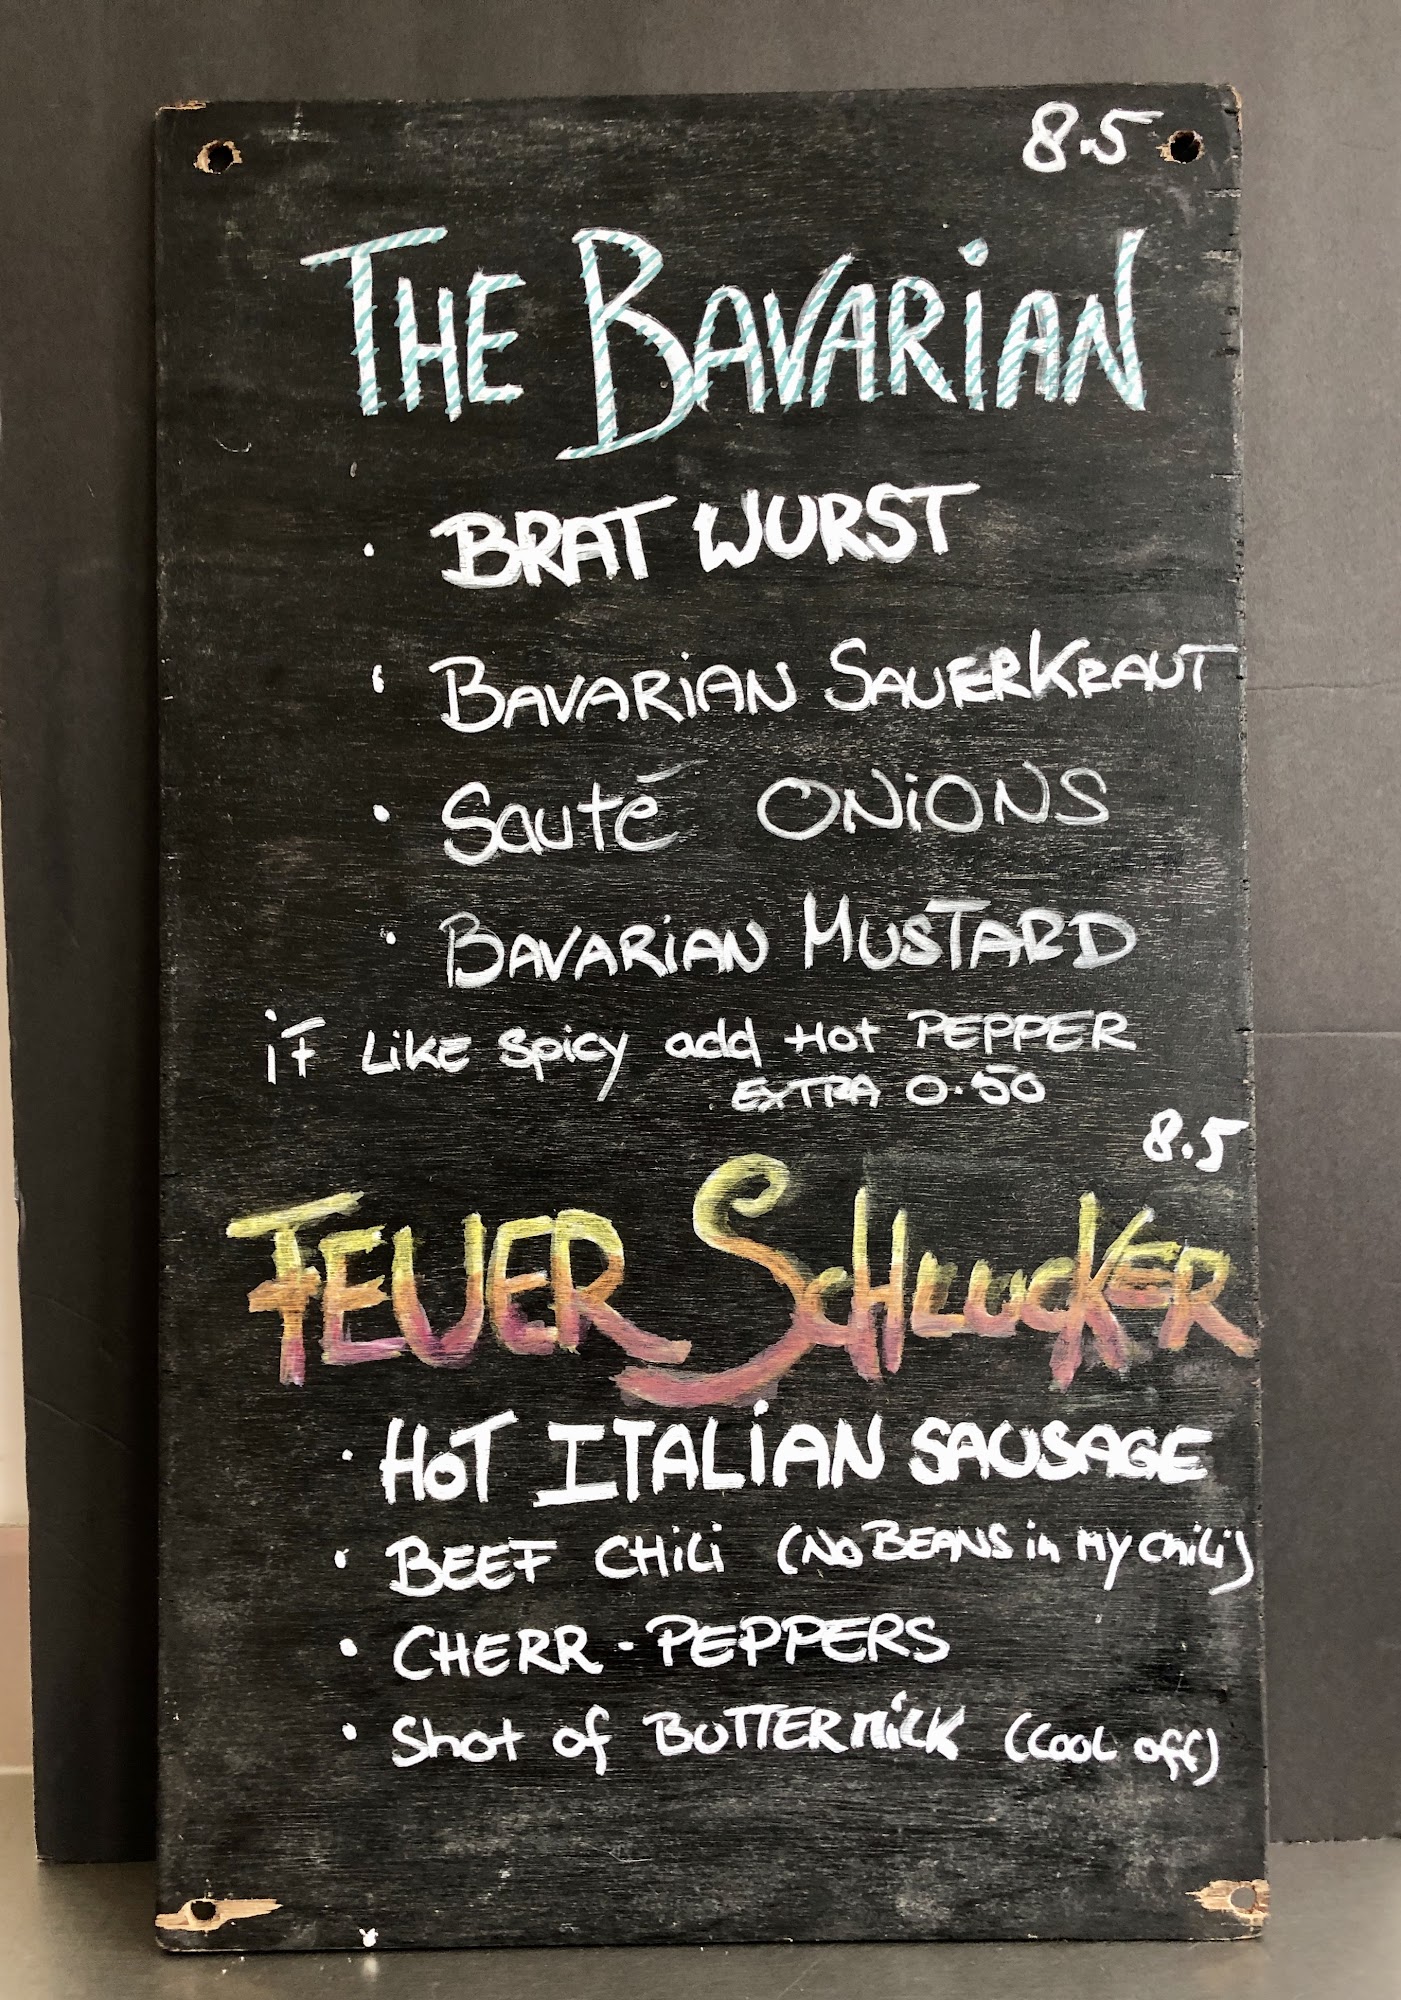 8.5
THE BAVARiAN
· BRAT WURST
· BAVARiAN SAUERKRAUT
· Sauté ONiONS
· BAVARiAN MUSTARD
iF LiKE Spicy add Hot PEPPER
EXTRA 0.50
8.5
FEUER SCHLUCKER
· HOT ITALiAN SAUSAGE
· BEEF CHiLi (No BEANS in My CHiLi)
· CHERR-PEPPERS
· Shot of BUTTERMiLK (Cool off)